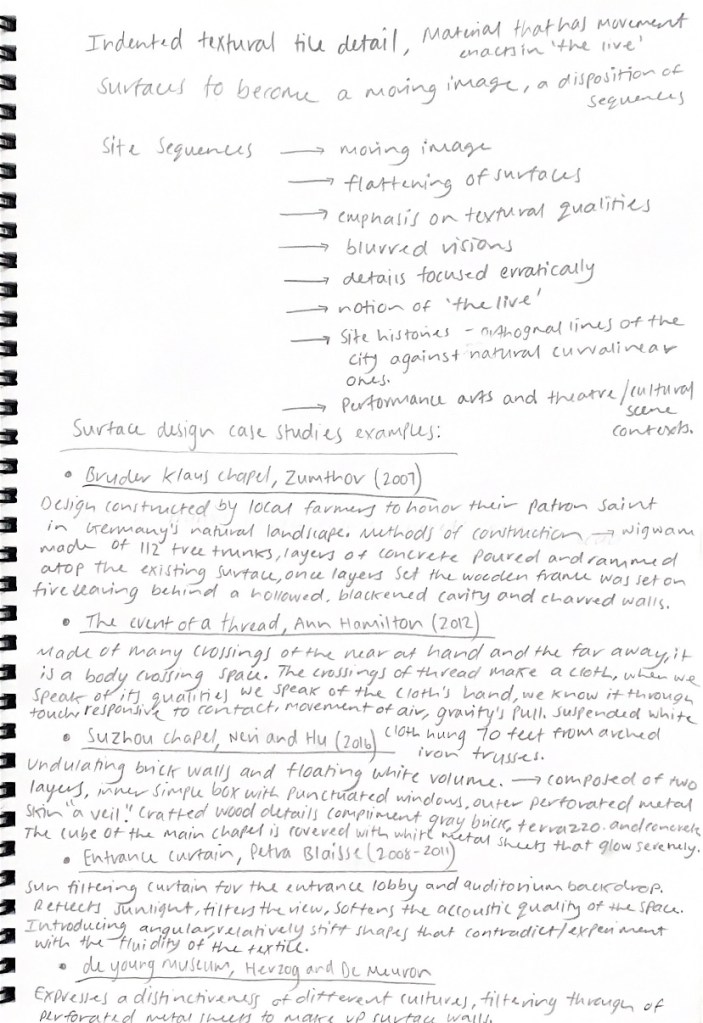 Indented textural tile detail, Material that has movement
enacts in 'the live'
Surfaces to become a moving image, a disposition of
sequences
Site Sequences → moving image
→ flattening of surfaces
→ emphasis on textural qualities
→ blurred visions
→ details focused erratically
→ notion of 'the live'
→ Site histories - orthognal lines of the
city against natural curvalinear
ones.
→ Performance arts and theatre/cultural
scene
contexts.
Surface design case studies examples:
• Bruder Klaus chapel, Zumthor (2007)
Design constructed by local farmers to honor their patron saint
in Germany's natural landscape. Methods of construction → wigwam
made of 112 tree trunks, layers of concrete poured and rammed
atop the existing surface, once layers set the wooden frame was set on
fire leaving behind a hollowed, blackened cavity and charred walls.
• The event of a thread, Ann Hamilton (2012)
Made of many crossings of the near at hand and the far away, it
is a body crossing space. The crossings of thread make a cloth, when we
speak of its qualities we speak of the cloth's hand, we know it through
touch, responsive to contact, movement of air, gravity's pull. Suspended white
cloth hung 70 feet from arched
iron trusses.
• Suzhou chapel, Neri and Hu (2016)
Undulating brick walls and floating white volume. → composed of two
layers, inner simple box with punctuated windows, outer perforated metal
skin "a veil." Crafted wood details compliment gray brick, terrazzo. and concrete
The cube of the main chapel is covered with white metal sheets that glow serenely.
• Entrance curtain, Petra Blaisse (2008-2011)
Sun filtering curtain for the entrance lobby and auditorium backdrop.
Reflects sunlight, filters the view, softens the accoustic quality of the space.
Introducing angular, relatively stiff shapes that contradict/experiment
with the fluidity of the textile.
• de young museum, Herzog and De Meuron
Expresses a distinctiveness of different cultures, filtering through of
perforated metal sheets to make up surface walls.